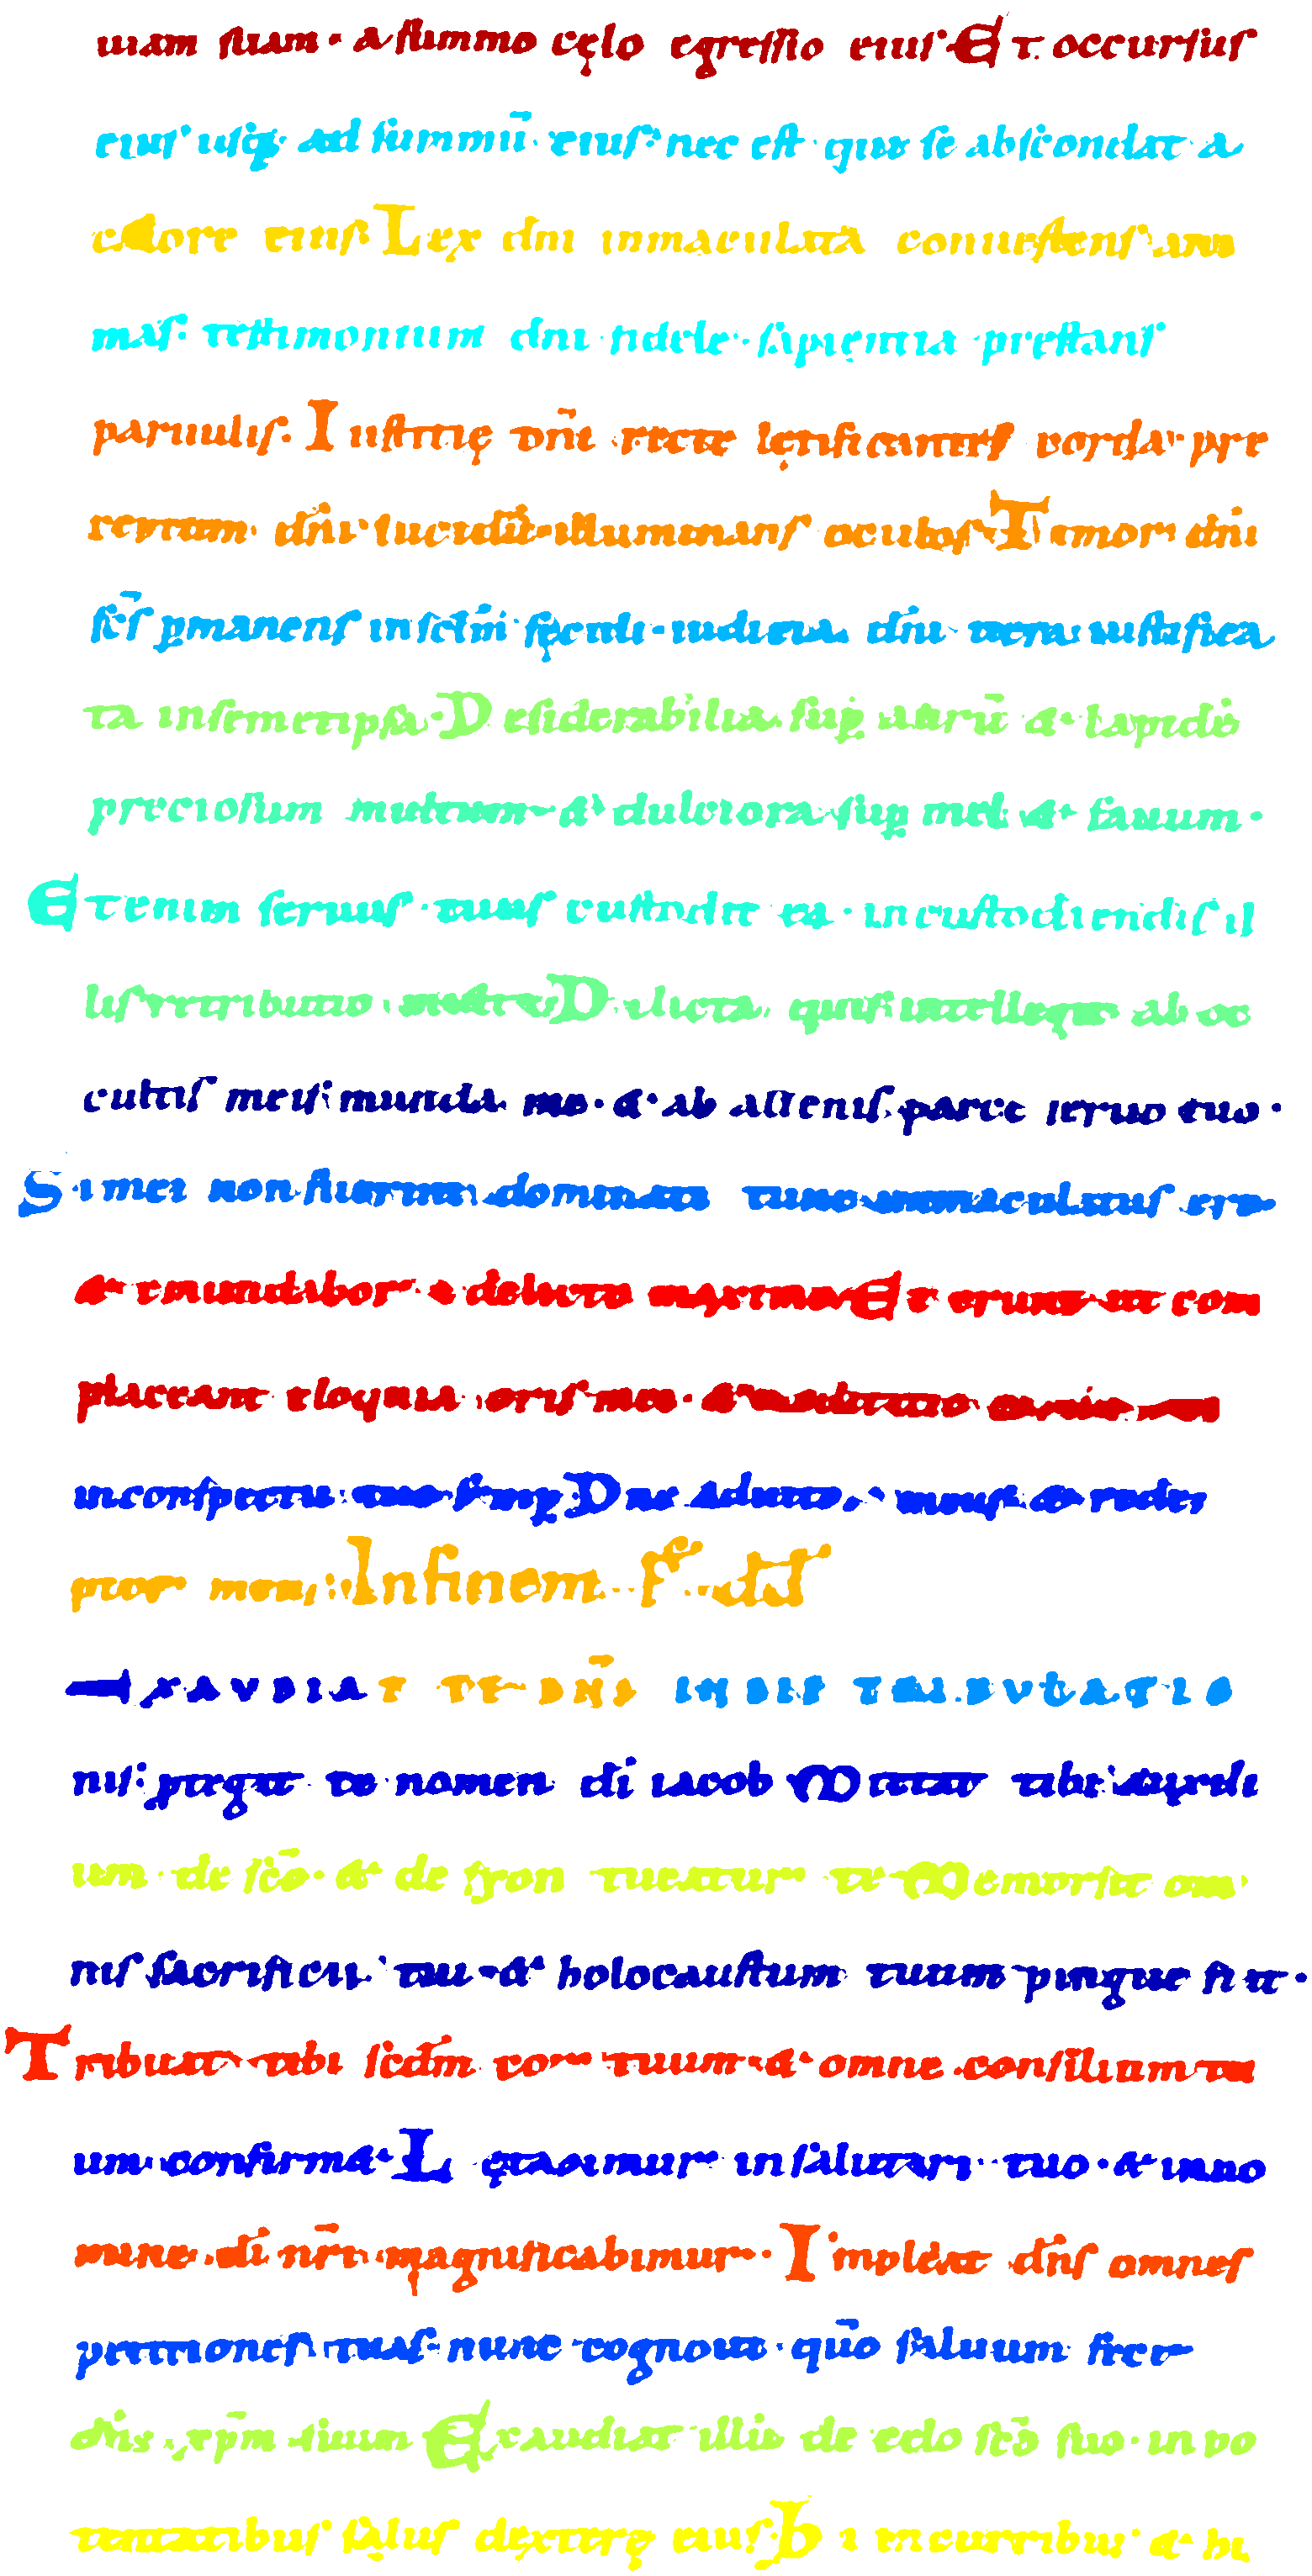 uiam suam · a summo cęlo egressio eius · Et occursus
eius usq; ad summū · eius · nec est · qui se abscondat · a
calore eius · Lex dni inmaculata conuertens ani
mas · testimonium dni fidele · sapientia prestans
paruulis · Iustitię dn̄i recte lętificantes corda · pre
ceptum dn̄i lucidū · illuminans oculos · Timor dn̄i
sc̄s ꝑmanens in sclm̄ sęculi · iudicia dn̄i uera iustifica
ta in semetipsa · Desiderabilia suꝑ aurū & lapidē
preciosum multum & dulciora suꝑ mel & fauum ·
Etenim seruus · tuus custodit ea · in custodiendis il
lis retributio multa · Delicta quis intellegit ab oc
cultis meis munda me · & ab alienis parce seruo tuo ·
Si mei non fuerint dominati tunc inmaculatus ero
& emundabor a delicto maximo Et erunt ut com
placeant eloquia oris mei · & meditatio
in conspectu tuo semꝑ Dne adiutor meus & redem
ptor meus : Infinem ps dd
EXAUDIAT TE DN̄S IN DIE TRIBULATIO
nis : ptegat te nomen di iacob Mittat tibi auxili
um · de sc̄o · & de syon tueatur te Memor sit om
nis sacrificii tui · & holocaustum tuum pingue fiat ·
Tribuat tibi scd̄m cor tuum & omne consilium tu
um confirm& Lętabimur in salutari tuo · & in no
mine di nr̄i magnificabimur · Impleat dn̄s omnes
petitiones tuas · nunc cognoui · qūo saluum fecit
dn̄s xp̄m suum Exaudiat illū de celo sc̄o suo · in po
tentatibus salus dexterę eius · hi in curribus & hi